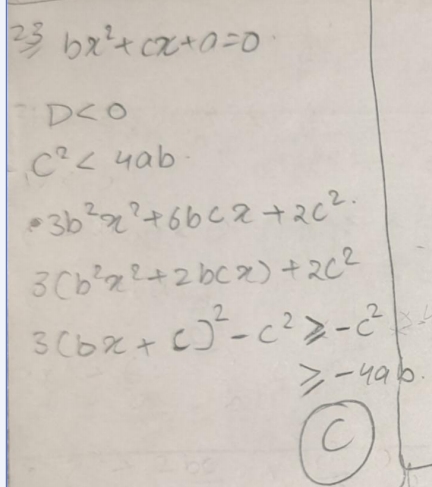 23 bx²+cx+a=0.
D<0
c² < 4ab.
3b²x²+6bcx+2c².
3(b²x²+2bcx)+2c²
3(bx+c)²-c² ≥ -c²
≥ -4ab.
C